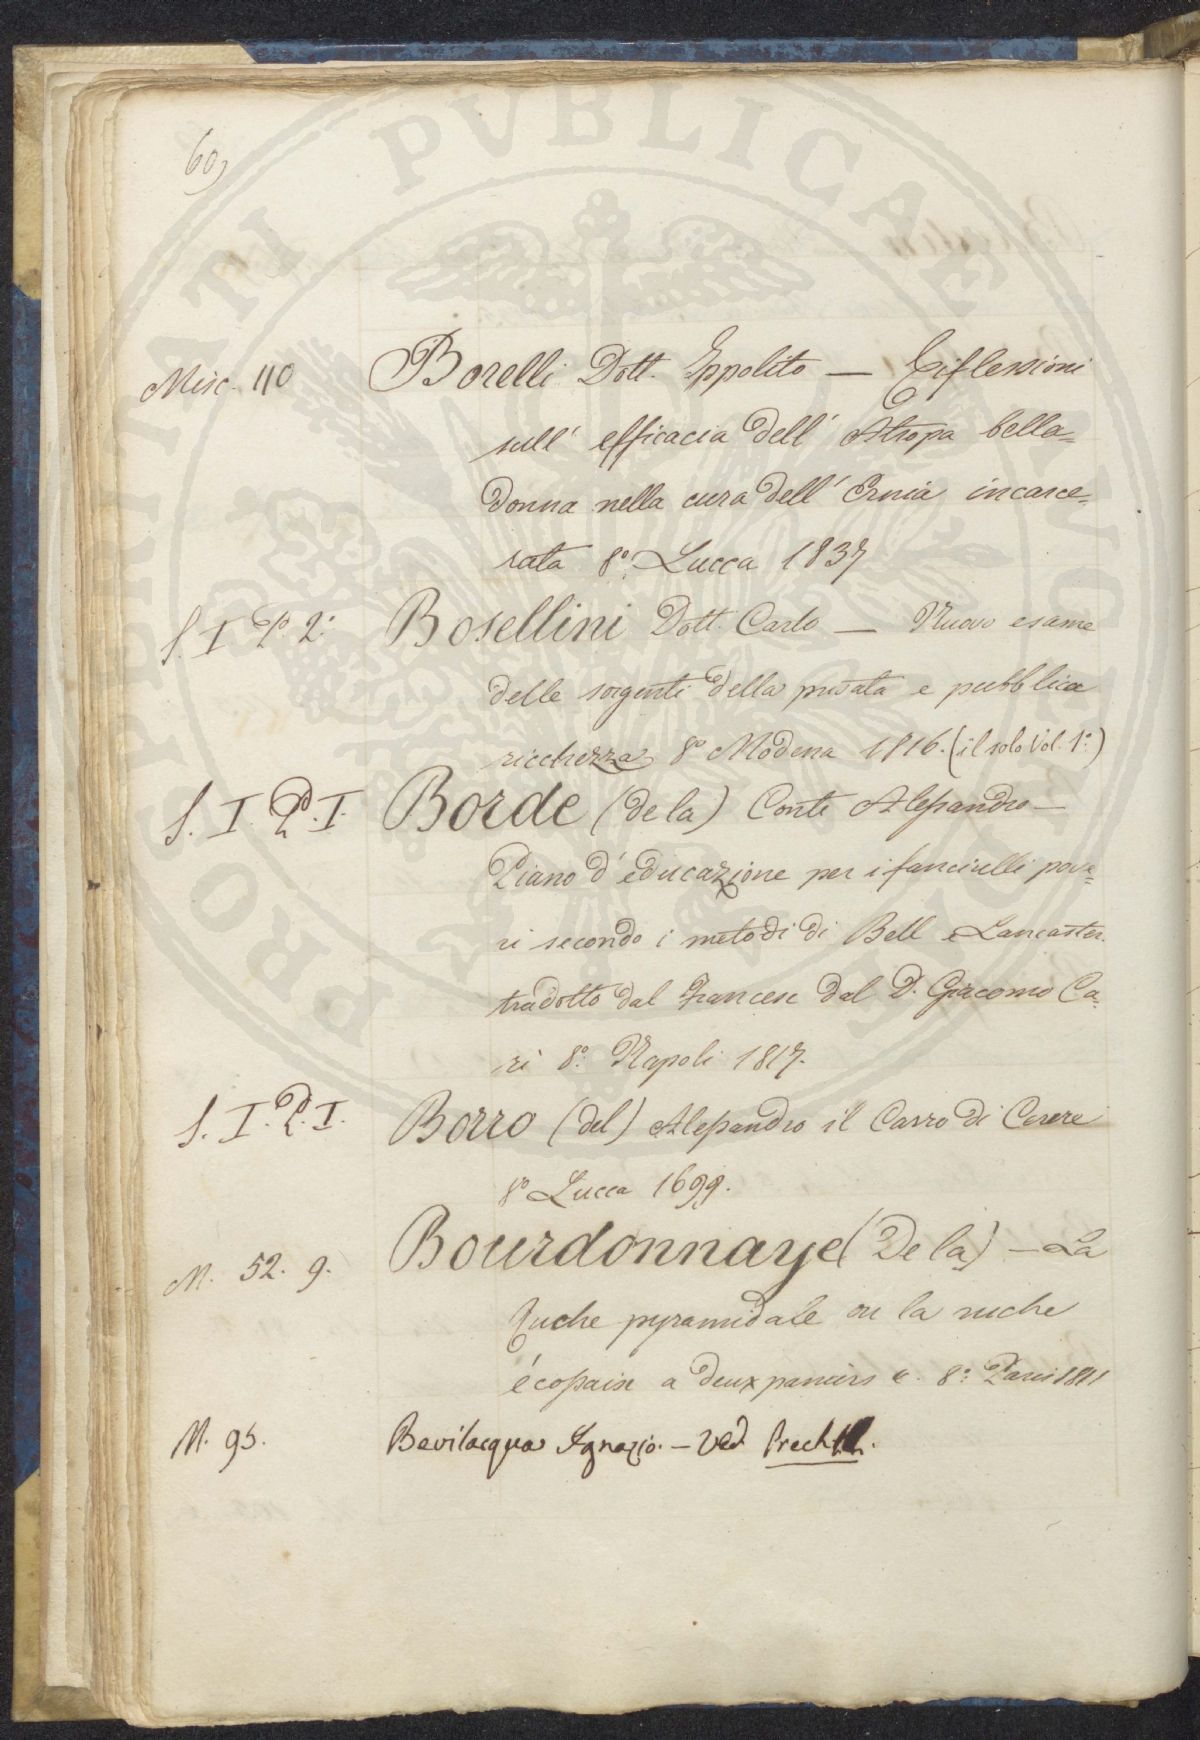 60)
Misc. 110 Borelli Dott. Ippolito — Riflessioni
sull' efficacia dell' Atropa bella=
donna nella cura dell' Ernia incarce=
rata 8.º Lucca 1837
S. I. Pº 2.º Bosellini Dott. Carlo — Nuovo esame
delle sorgenti della privata e pubblica
ricchezza 8º Modena 1816. (il solo Vol. 1.º)
S. I. P. I. Borde (de la) Conte Alessandro —
Piano d' educazione per i fanciulli pove=
ri secondo i metodi di Bell e Lancaster
tradotto dal Francese dal D. Giacomo Ca=
ri 8.º Napoli 1817.
S. I. P. I. Borro (del) Alessandro il Carro di Cerere
8º Lucca 1699.
M. 52. 9. Bourdonnaye (De la) — La
Ruche pyramidale ou la ruche
écossaise a deux paniers &. 8.º Paris 1811
M. 95. Bevilacqua Ignazio. — Ved.
PROSPERITATI PVBLICAE AVGENDAE